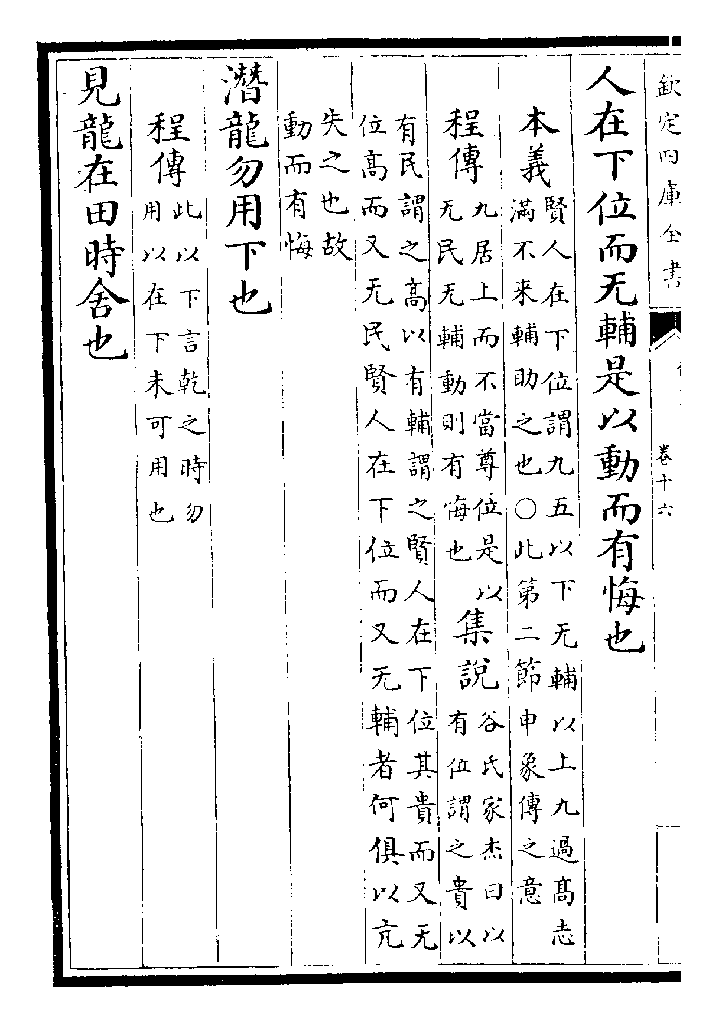 欽定四庫全書
卷十六
人在下位而无輔是以動而有悔也
本義
賢人在下位謂九五以下无輔以上九過高志
滿不來輔助之也○此第二節申象傳之意
程傳
九居上而不當尊位是以
无民无輔動則有悔也
集說
谷氏家杰曰以
有位謂之貴以
有民謂之高以有輔謂之賢人在下位其貴而又无
位高而又无民賢人在下位而又无輔者何俱以亢
失之也故
動而有悔
潛龍勿用下也
程傳
此以下言乾之時勿
用以在下未可用也
見龍在田時舍也